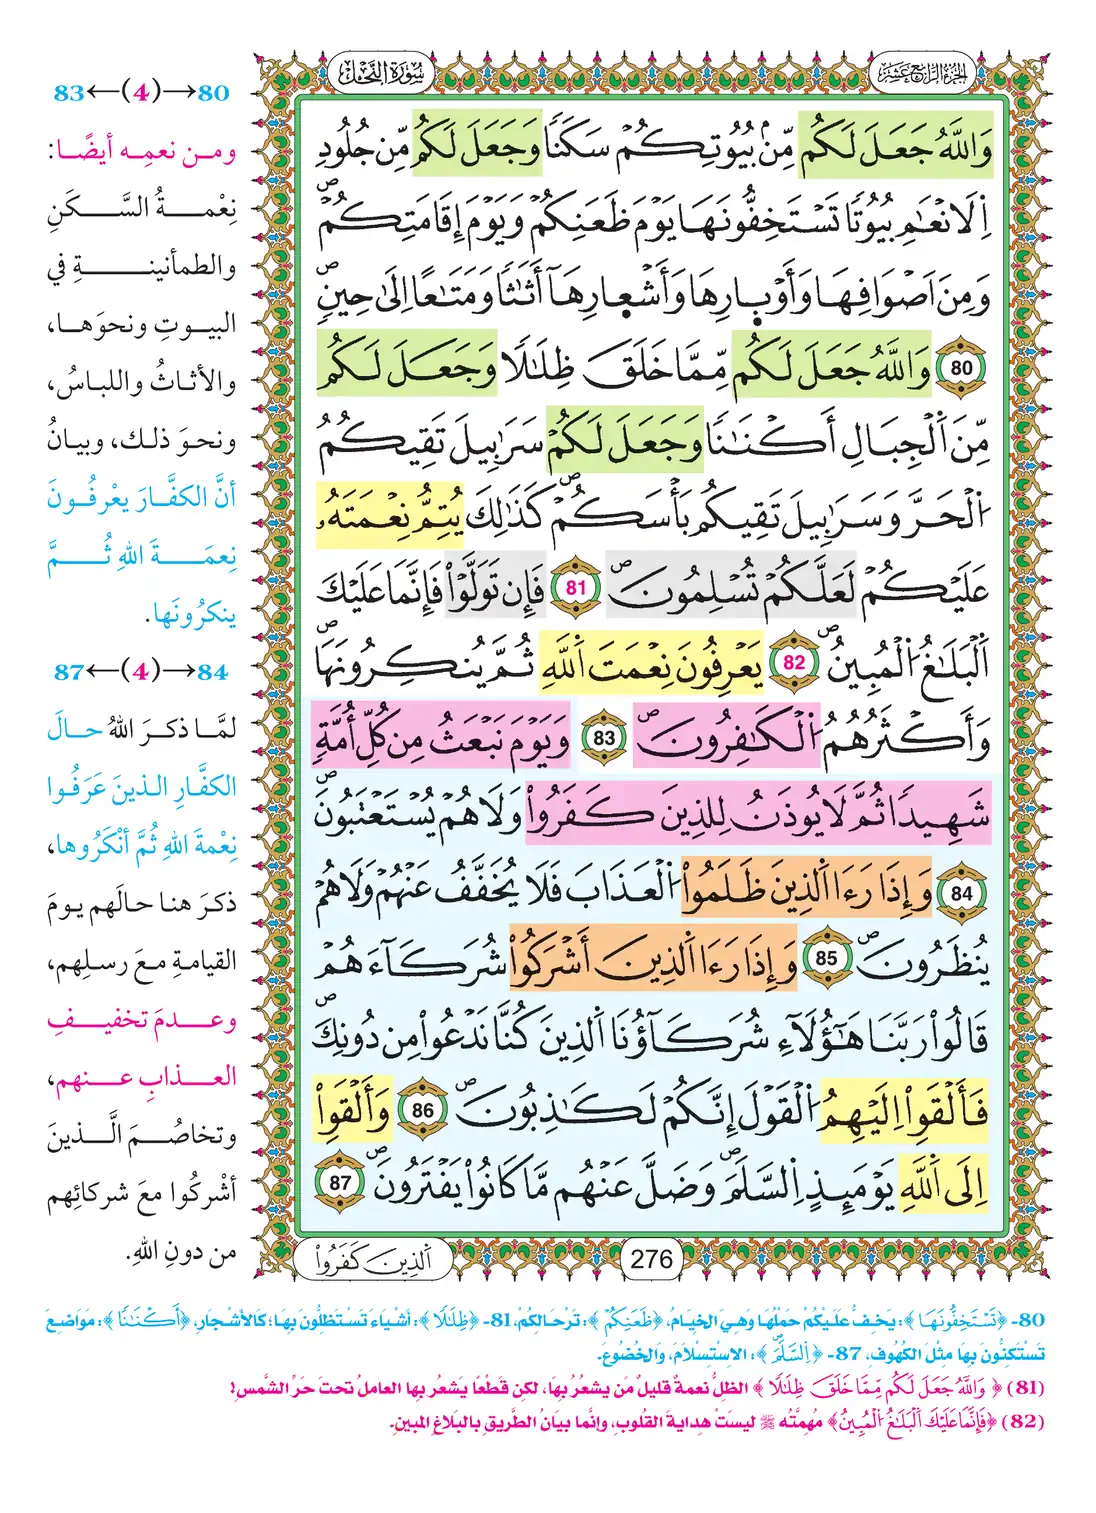 سُورَةُ النَّحْلِ
الجُزْءُ الرَّابِعُ عَشَرَ
وَاللَّهُ جَعَلَ لَكُم مِّنۢ بُيُوتِكُمْ سَكَنًا وَجَعَلَ لَكُم مِّن جُلُودِ
اِ۬لَانْعَٰمِ بُيُوتًا تَسْتَخِفُّونَهَا يَوْمَ ظَعَنِكُمْ وَيَوْمَ إِقَامَتِكُمْ
وَمِنَ اَصْوَافِهَا وَأَوْبِارِهَا وَأَشْعِارِهَآ أَثَٰثًا وَمَتَٰعًا اِلَىٰ حِينٍ
80 وَاللَّهُ جَعَلَ لَكُم مِّمَّا خَلَقَ ظِلَٰلًا وَجَعَلَ لَكُم
مِّنَ اَ۬لْجِبَالِ أَكْنَٰنًا وَجَعَلَ لَكُمْ سَرَٰبِيلَ تَقِيكُمُ
اُ۬لْحَرَّ وَسَرَٰبِيلَ تَقِيكُم بَأْسَكُمْ كَذَٰلِكَ يُتِمُّ نِعْمَتَهُۥ
عَلَيْكُمْ لَعَلَّكُمْ تُسْلِمُونَ 81 فَإِن تَوَلَّوْاْ فَإِنَّمَا عَلَيْكَ
اَ۬لْبَلَٰغُ اُ۬لْمُبِينُ 82 يَعْرِفُونَ نِعْمَتَ اَ۬للَّهِ ثُمَّ يُنكِرُونَهَا
وَأَكْثَرُهُمُ اُ۬لْكَٰفِرُونَ 83 وَيَوْمَ نَبْعَثُ مِن كُلِّ أُمَّةٍ
شَهِيدًا ثُمَّ لَا يُوذَنُ لِلذِينَ كَفَرُواْ وَلَا هُمْ يُسْتَعْتَبُونَ
84 وَإِذَا رَءَا اَ۬لذِينَ ظَلَمُواْ اُ۬لْعَذَابَ فَلَا يُخَفَّفُ عَنْهُمْ وَلَا هُمْ
يُنظَرُونَ 85 وَإِذَا رَءَا اَ۬لذِينَ أَشْرَكُواْ شُرَكَآءَهُمْ
قَالُواْ رَبَّنَا هَٰٓؤُلَآءِ شُرَكَآؤُنَا اَ۬لذِينَ كُنَّا نَدْعُواْ مِن دُونِكَ
فَأَلْقَوِاْ اِلَيْهِمُ اُ۬لْقَوْلَ إِنَّكُمْ لَكَٰذِبُونَ 86 وَأَلْقَوِاْ
اِلَى اَ۬للَّهِ يَوْمَئِذٍ اِ۬لسَّلَمَ وَضَلَّ عَنْهُم مَّا كَانُواْ يَفْتَرُونَ 87
اَ۬لذِينَ كَفَرُواْ
276
80→(4)←83
ومن نعمِه أيضًا:
نِعْمةُ السَّكَنِ
والطمأنينةِ في
البيوتِ ونحوَها،
والأثاثُ واللباسُ،
ونحوَ ذلك، وبيانُ
أنَّ الكفَّارَ يعْرفُونَ
نِعمَةَ اللهِ ثُمَّ
ينكرُونَها.
84→(4)←87
لمَّا ذكرَ اللهُ حالَ
الكفَّارِ الذينَ عَرَفُوا
نِعْمةَ اللهِ ثُمَّ أنْكَرُوها،
ذكرَ هنا حالَهم يومَ
القيامةِ معَ رسلِهم،
وعدمَ تخفيفِ
العذابِ عنهم،
وتخاصُمَ الَّذينَ
أشْركُوا معَ شركائِهم
من دونِ اللهِ.
80- ﴿تَسْتَخِفُّونَهَا﴾: يَخِفُّ عَلَيْكُمْ حَمْلُهَا وَهِيَ الخِيَامُ، ﴿ظَعَنِكُمْ﴾: تَرْحَالِكُمْ، 81- ﴿ظِلَٰلًا﴾: أَشْيَاءَ تَسْتَظِلُّونَ بِهَا؛ كَالأَشْجَارِ، ﴿أَكْنَٰنًا﴾: مَوَاضِعَ
تَسْتَكِنُّونَ بِهَا مِثْلَ الكُهُوفِ، 87- ﴿اِ۬لسَّلَمَ﴾: الِاسْتِسْلَامَ، وَالخُضُوعَ.
(81) ﴿وَاللَّهُ جَعَلَ لَكُم مِّمَّا خَلَقَ ظِلَٰلًا﴾ الظلُّ نعمةٌ قليلٌ مَن يشعُرُ بهَا، لكن قَطْعًا يشعُر بها العاملُ تحتَ حَرِّ الشَّمسِ!
(82) ﴿فَإِنَّمَا عَلَيْكَ اَ۬لْبَلَٰغُ اُ۬لْمُبِينُ﴾ مُهمَّتُه ﷺ ليسَتْ هِدايةَ القلوبِ، وإنَّما بيَانُ الطَّريقِ بالبَلاغِ المبينِ.